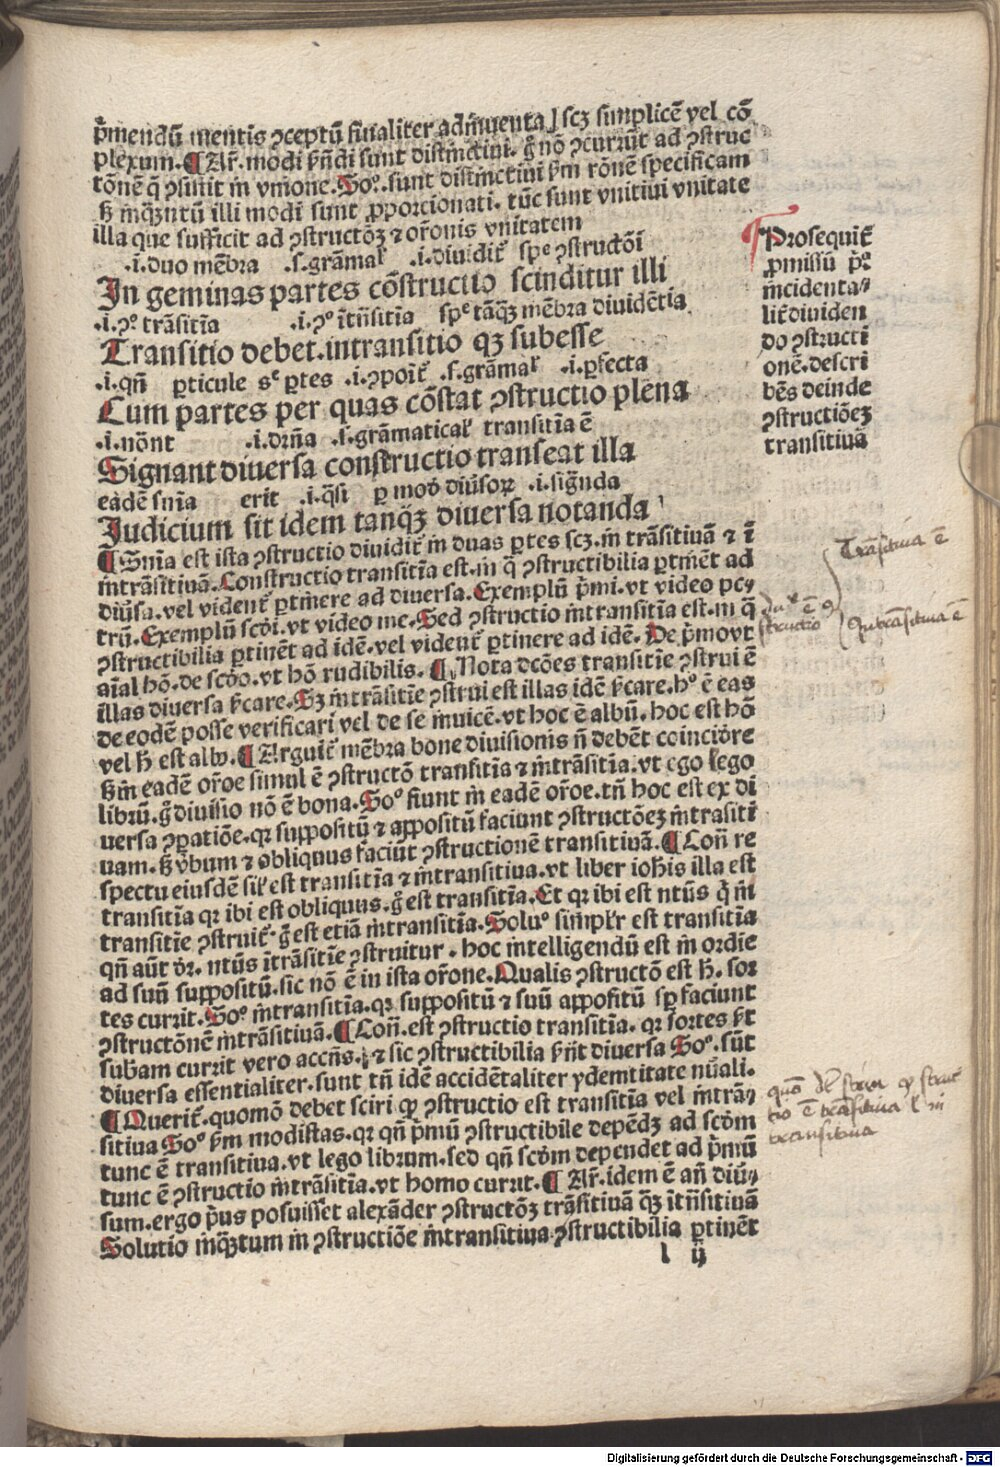 p̄mendū mentis ꝯceptū finaliter admīuenta scꝫ simplicē vel cō
plexum. ¶ Ar̄. modi sūt distīctiui. gͦ nō ꝯcurūt ad ꝯstruc
tōnē q̄ ꝯsistit in vnione. Soº. sunt distīctiui ẜm rōnē specificam
ẜ inqꝫntū illi modi sunt ꝓporcionati. tūc sunt vnitiui vnitate
illa que sufficit ad ꝯstructōꝫ ⁊ or̄onis vnitatem
.i.duo mēbra .s.grāmal̄ .i.diuidit᷑ spē ꝯstructōī
In geminas partes cōstructio scinditur illi
.i.ꝯº trāsitīa .i.ꝯº ītn̄sitīa spe tāqꝫ mēbra diuidētia
Transitio debet.intransitio qꝫ subesse
.i.qn̄ ꝑticule sᵉ ꝑtes .i.ꝯpoīt᷑ .s.grāmal̄ .i.ꝑfecta
Cum partes per quas cōstat ꝯstructio plena
.i.nōnt .i.dr̄na .s.grāmatical̄ transitīa ē
Signant diuersa constructio transeat illa
eadē sn̄ia erit .i.q̄si ꝑ modū diūsoꝝ .i.sign̄da
Judicium sit idem tanqꝫ diuersa notanda
¶ Sn̄ia est ista ꝯstructio diuidit᷑ in duas ꝑtes scꝫ.in trāsitiuā ⁊ ī
intrāsitiuā. Constructio transitīa est.in q̄ ꝯstructibilia ꝑtinēt ad
diūsa.vel vident᷑ ꝑtinere ad diuersa. Exemplū p̄mi.vt video pe-
trū. Exemplū scd̄i.vt video me. Sed ꝯstructio intransitīa est.in q̄
ꝯstructibilia ꝑtinēt ad idē.vel vident᷑ ꝑtinere ad idē. De p̄mo vt
aīal hō.de scd̄o.vt hō rudibilis. ¶ Nota dcōes transitīe ꝯstrui ē
illas diuersa ẜcare. Sꝫ intrāsitīe ꝯstrui est illas idē ẜcare.hº ē eas
de eodē posse verificari vel de se inuicē.vt hoc ē albū.hoc est hō
vel ẜ est albꝰ. ¶ Arguit᷑ mēbra bone diuisionis n̄ debēt coincidre
ẜm eadē or̄oe simul ē ꝯstructō transitīa ⁊ intrāsitīa.vt ego lego
librū.gͦ diuisio nō ē bona. Soº fiunt in eadē or̄oe.tn̄ hoc est ex di
uersa ꝯꝑatiōe.qꝛ suppositū ⁊ appositū faciunt ꝯstructōeꝫ intrasiti
uam.ẜ v̄bum ⁊ obliquus faciūt ꝯstructionē transitiuā. ¶ Con̄ re
spectu eiusdē sil̄ est transitīa ⁊ intransitiua.vt liber iohis illa est
transitīa qꝛ ibi est obliquus.gͦ est transitīa. Et qꝛ ibi est nt̄us q̄ in
transitīe ꝯstruit᷑.gͦ est etiā intransitīa. Soluº simpl̄r est transitīa
qn̄ aūt dr̄. nt̄us ītrāsitīe ꝯstruitur. hoc intelligendū est in ordīe
ad suū suppositū.sic nō ē in ista or̄one. Qualis ꝯstructō est ẜ. sor
tes currit. Soº intransitīa.qꝛ suppositū ⁊ suū appositū sꝑ faciunt
ꝯstructōnē intrāsitiuā. ¶ Con̄.est ꝯstructio transitīa. qꝛ sortes ẜt
subam currit vero accn̄s. ⁊ sic ꝯstructibilia ẜn̄t diuersa Soº.sūt
diuersa essentialiter.sunt tn̄ idē accidētaliter ydemtitate nūali.
¶ Querit᷑.quomō debet sciri ꝙ ꝯstructio est transitīa vel intrā-
sitiua Soº ẜm modistas.qꝛ qn̄ p̄mū ꝯstructibile depēdꝫ ad scd̄m
tunc ē transitiua.vt lego librum.sed qn̄ scd̄m dependet ad p̄mū
tunc ē ꝯstructio intrāsitīa.vt homo currit. ¶ Ar̄.idem ē an̄ diū-
sum.ergo p̄us posuisset alexāder ꝯstructōꝫ trāsitiuā qꝫ ītn̄sitiuā
Solutio inqꝫtum in ꝯstructiōe intransitiua ꝯstructibilia ꝑtinēt
l ij
Prosequit᷑
ꝓmissū p̄º
incidenta-
lit᷑ diuiden
do ꝯstructi
onē.descri
bēs deinde
ꝯstructiōeꝫ
transitiuā
Trāsitiua ē
structio
Intrāsitiua ē
tio ē trāsitiua l in
transitiua